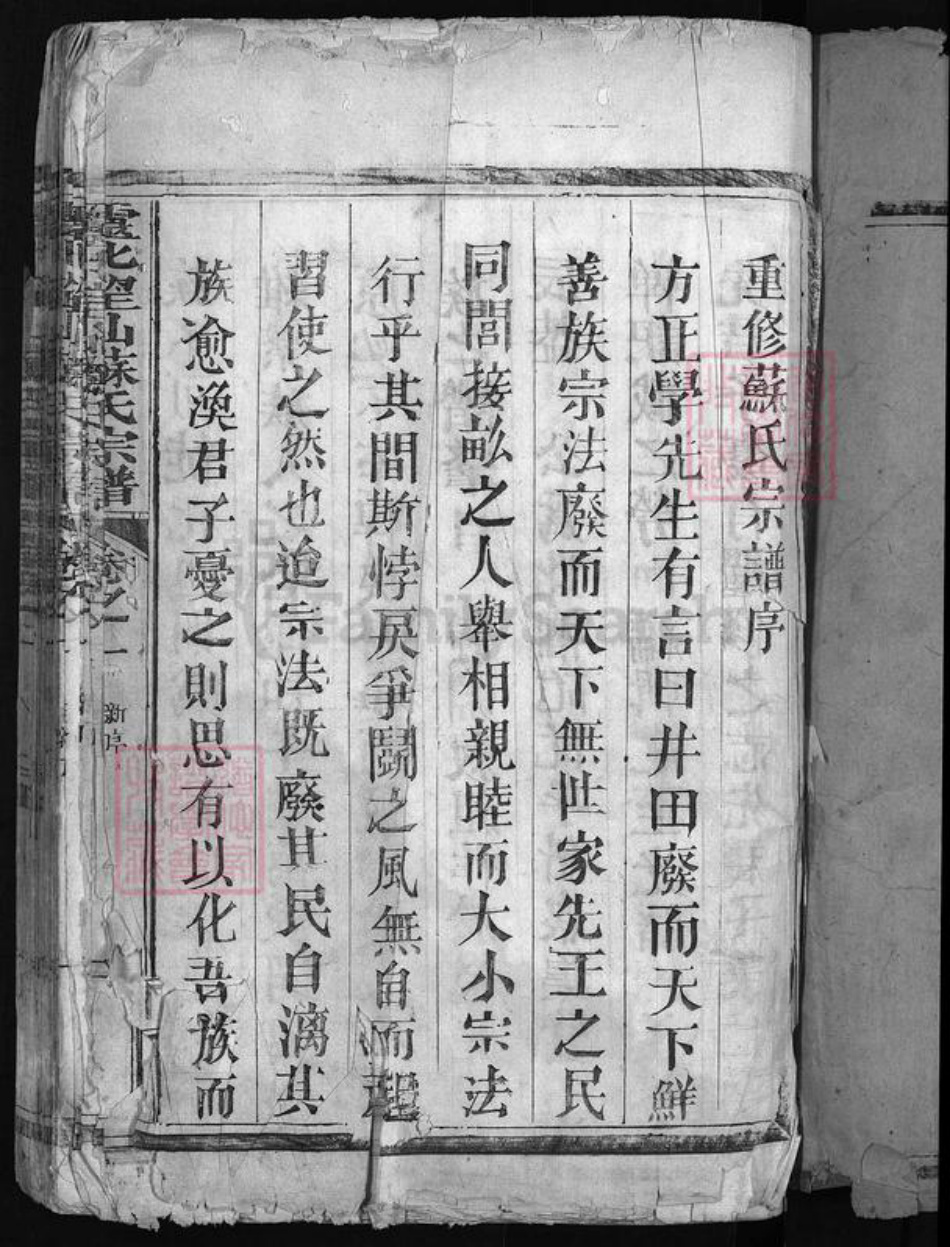 重修蘇氏宗譜序
方正學先生有言曰井田廢而天下鮮
善族宗法廢而天下無世家先王之民
同閭接畝之人舉相親睦而大小宗法
行乎其間斯悖戾爭鬪之風無自而起
習使之然也迨宗法既廢其民自漓其
族愈渙君子憂之則思有以化吾族而
望山蘇氏宗譜 卷之一 新序